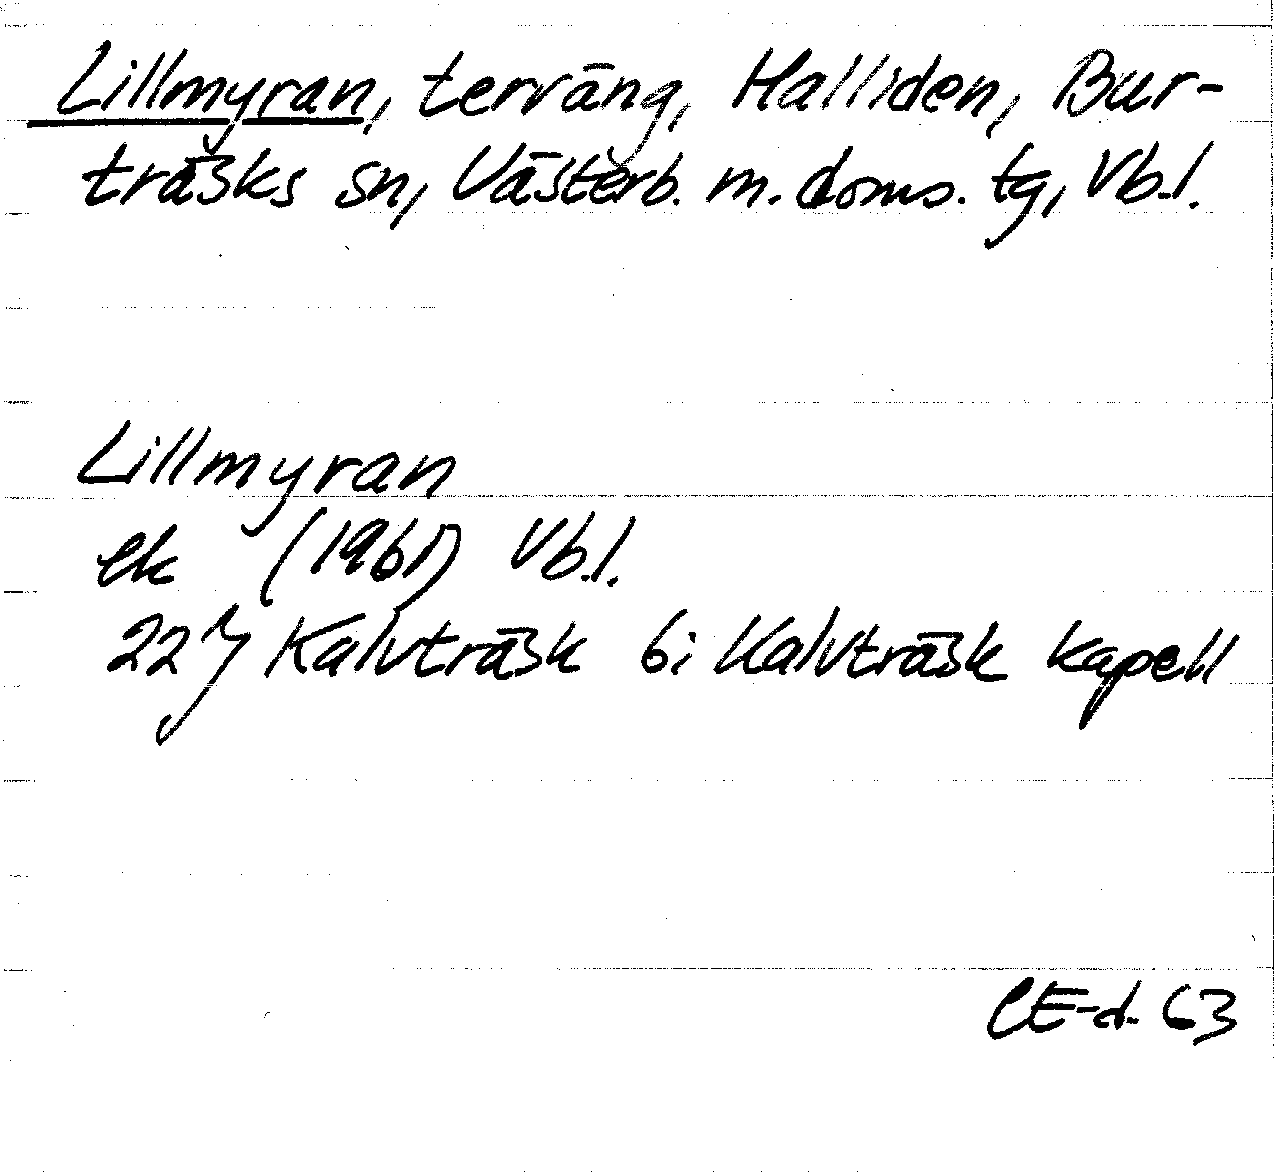 Lillmyran, terräng, Halliden, Bur-
träsks sn, Västerb. m. doms. tg, Vb.l.
Lillmyran
ek (1961) Vb.l.
22J Kalvträsk 6i Kalvträsk kapell
CE-d. 63